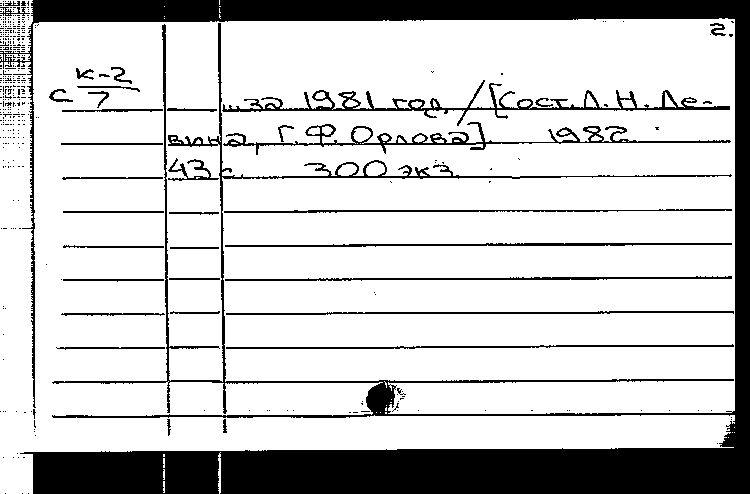 2.
К-2
С 7
...за 1981 год. / [Сост. Л. Н. Ле-
вина, Г. Ф. Орлова]. 1982.
43 с. 300 экз.